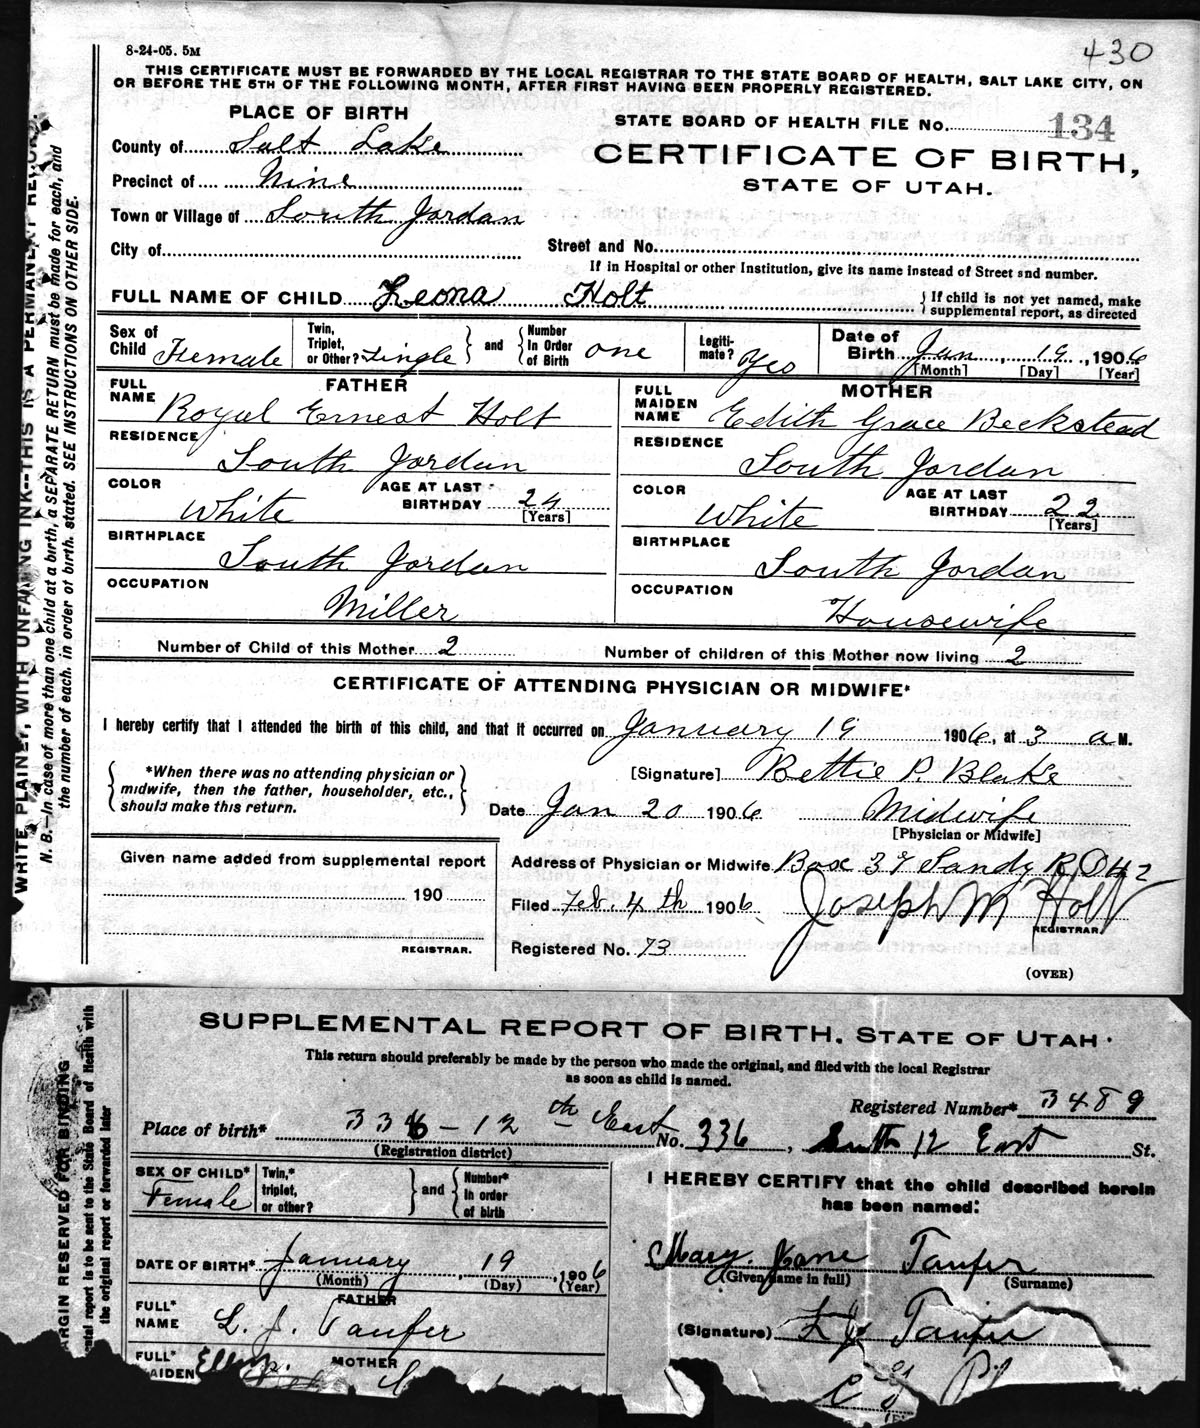 430
8-24-05. 5M
THIS CERTIFICATE MUST BE FORWARDED BY THE LOCAL REGISTRAR TO THE STATE BOARD OF HEALTH, SALT LAKE CITY, ON
OR BEFORE THE 5TH OF THE FOLLOWING MONTH, AFTER FIRST HAVING BEEN PROPERLY REGISTERED.
PLACE OF BIRTH
STATE BOARD OF HEALTH FILE No. 134
County of Salt Lake
CERTIFICATE OF BIRTH,
Precinct of Nine
STATE OF UTAH.
Town or Village of South Jordan
City of
Street and No.
If in Hospital or other Institution, give its name instead of Street snd number.
FULL NAME OF CHILD Leona Holt
If child is not yet named, make
supplemental report, as directed
Sex of Child Female
Twin, Triplet, or Other? Single
and
Number In Order of Birth one
Legiti- mate? Yes
Date of Birth Jan, 19, 1906
[Month] [Day] [Year]
FATHER
FULL NAME Royal Ernest Holt
MOTHER
FULL MAIDEN NAME Edith Grace Beckstead
RESIDENCE South Jordan
RESIDENCE South Jordan
COLOR White
AGE AT LAST BIRTHDAY 24 [Years]
COLOR White
AGE AT LAST BIRTHDAY 22 [Years]
BIRTHPLACE South Jordan
BIRTHPLACE South Jordan
OCCUPATION Miller
OCCUPATION Housewife
Number of Child of this Mother 2
Number of children of this Mother now living 2
CERTIFICATE OF ATTENDING PHYSICIAN OR MIDWIFE*
I hereby certify that I attended the birth of this child, and that it occurred on January 19 1906, at 3 a M.
*When there was no attending physician or
midwife, then the father, householder, etc.,
should make this return.
[Signature] Bettie P. Blake
Date Jan 20 1906
Midwife
[Physician or Midwife]
Given name added from supplemental report
190
REGISTRAR.
Address of Physician or Midwife Box 39 Sandy R D # 2
Filed Feb. 4th 1906
Joseph M Holt
REGISTRAR.
Registered No. 73
(OVER)
WRITE PLAINLY, WITH UNFADING INK--THIS IS A PERMANENT RECORD
N. B.—In case of more than one child at a birth, a SEPARATE RETURN must be made for each, and
the number of each, in order of birth, stated. SEE INSTRUCTIONS ON OTHER SIDE.
SUPPLEMENTAL REPORT OF BIRTH. STATE OF UTAH.
This return should preferably be made by the person who made the original, and filed with the local Registrar
as soon as child is named.
Registered Number* 3489
Place of birth* 336 - 12th East No. 336, South 12 East St.
(Registration district)
SEX OF CHILD* Female
Twin,* triplet, or other?
and
Number* In order of birth
I HEREBY CERTIFY that the child described herein
has been named:
DATE OF BIRTH* January, 19, 1906
(Month) (Day) (Year)
Mary Jane Taufer
(Given name in full) (Surname)
FATHER
FULL* NAME L. J. Taufer
(Signature) L J Taufer
FULL* MAIDEN
MOTHER
MARGIN RESERVED FOR BINDING
ntal report is to be sent to the State Board of Health with
the original report or forwarded later